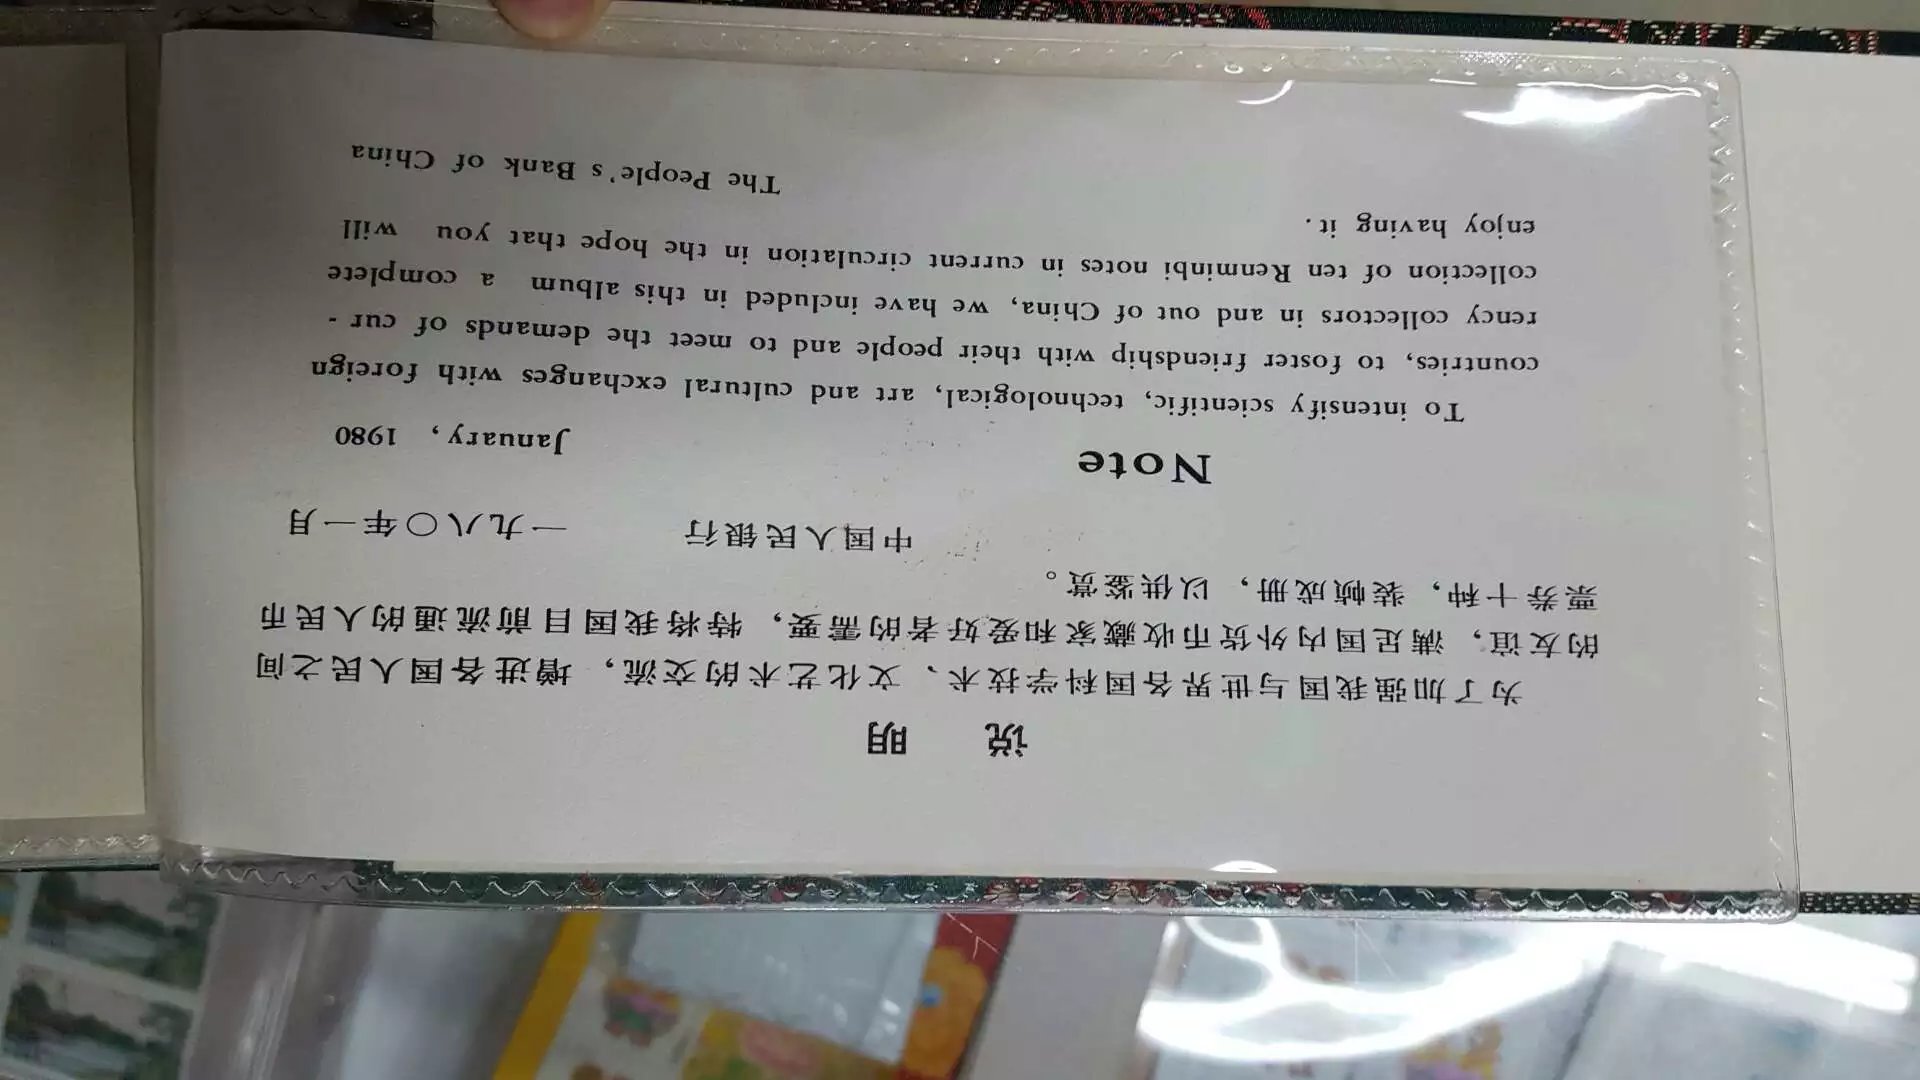 说 明
为了加强我国与世界各国科学技术、文化艺术的交流，增进各国人民之间
的友谊，满足国内外货币收藏家和爱好者的需要，特将我国目前流通的人民币
票券十种，装帧成册，以供鉴赏。
中国人民银行 一九八〇年一月
Note
January, 1980
To intensify scientific, technological, art and cultural exchanges with foreign
countries, to foster friendship with their people and to meet the demands of cur-
rency collectors in and out of China, we have included in this album a complete
collection of ten Renminbi notes in current circulation in the hope that you will
enjoy having it.
The People's Bank of China